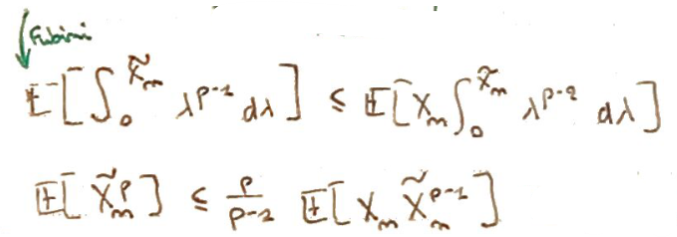 Fubini
𝔼[∫₀^{X̃_m} λ^{p-1} dλ] ≤ 𝔼[X_m ∫₀^{X̃_m} λ^{p-2} dλ]
𝔼[X̃_m^p] ≤ \frac{p}{p-1} 𝔼[X_m X̃_m^{p-1}]